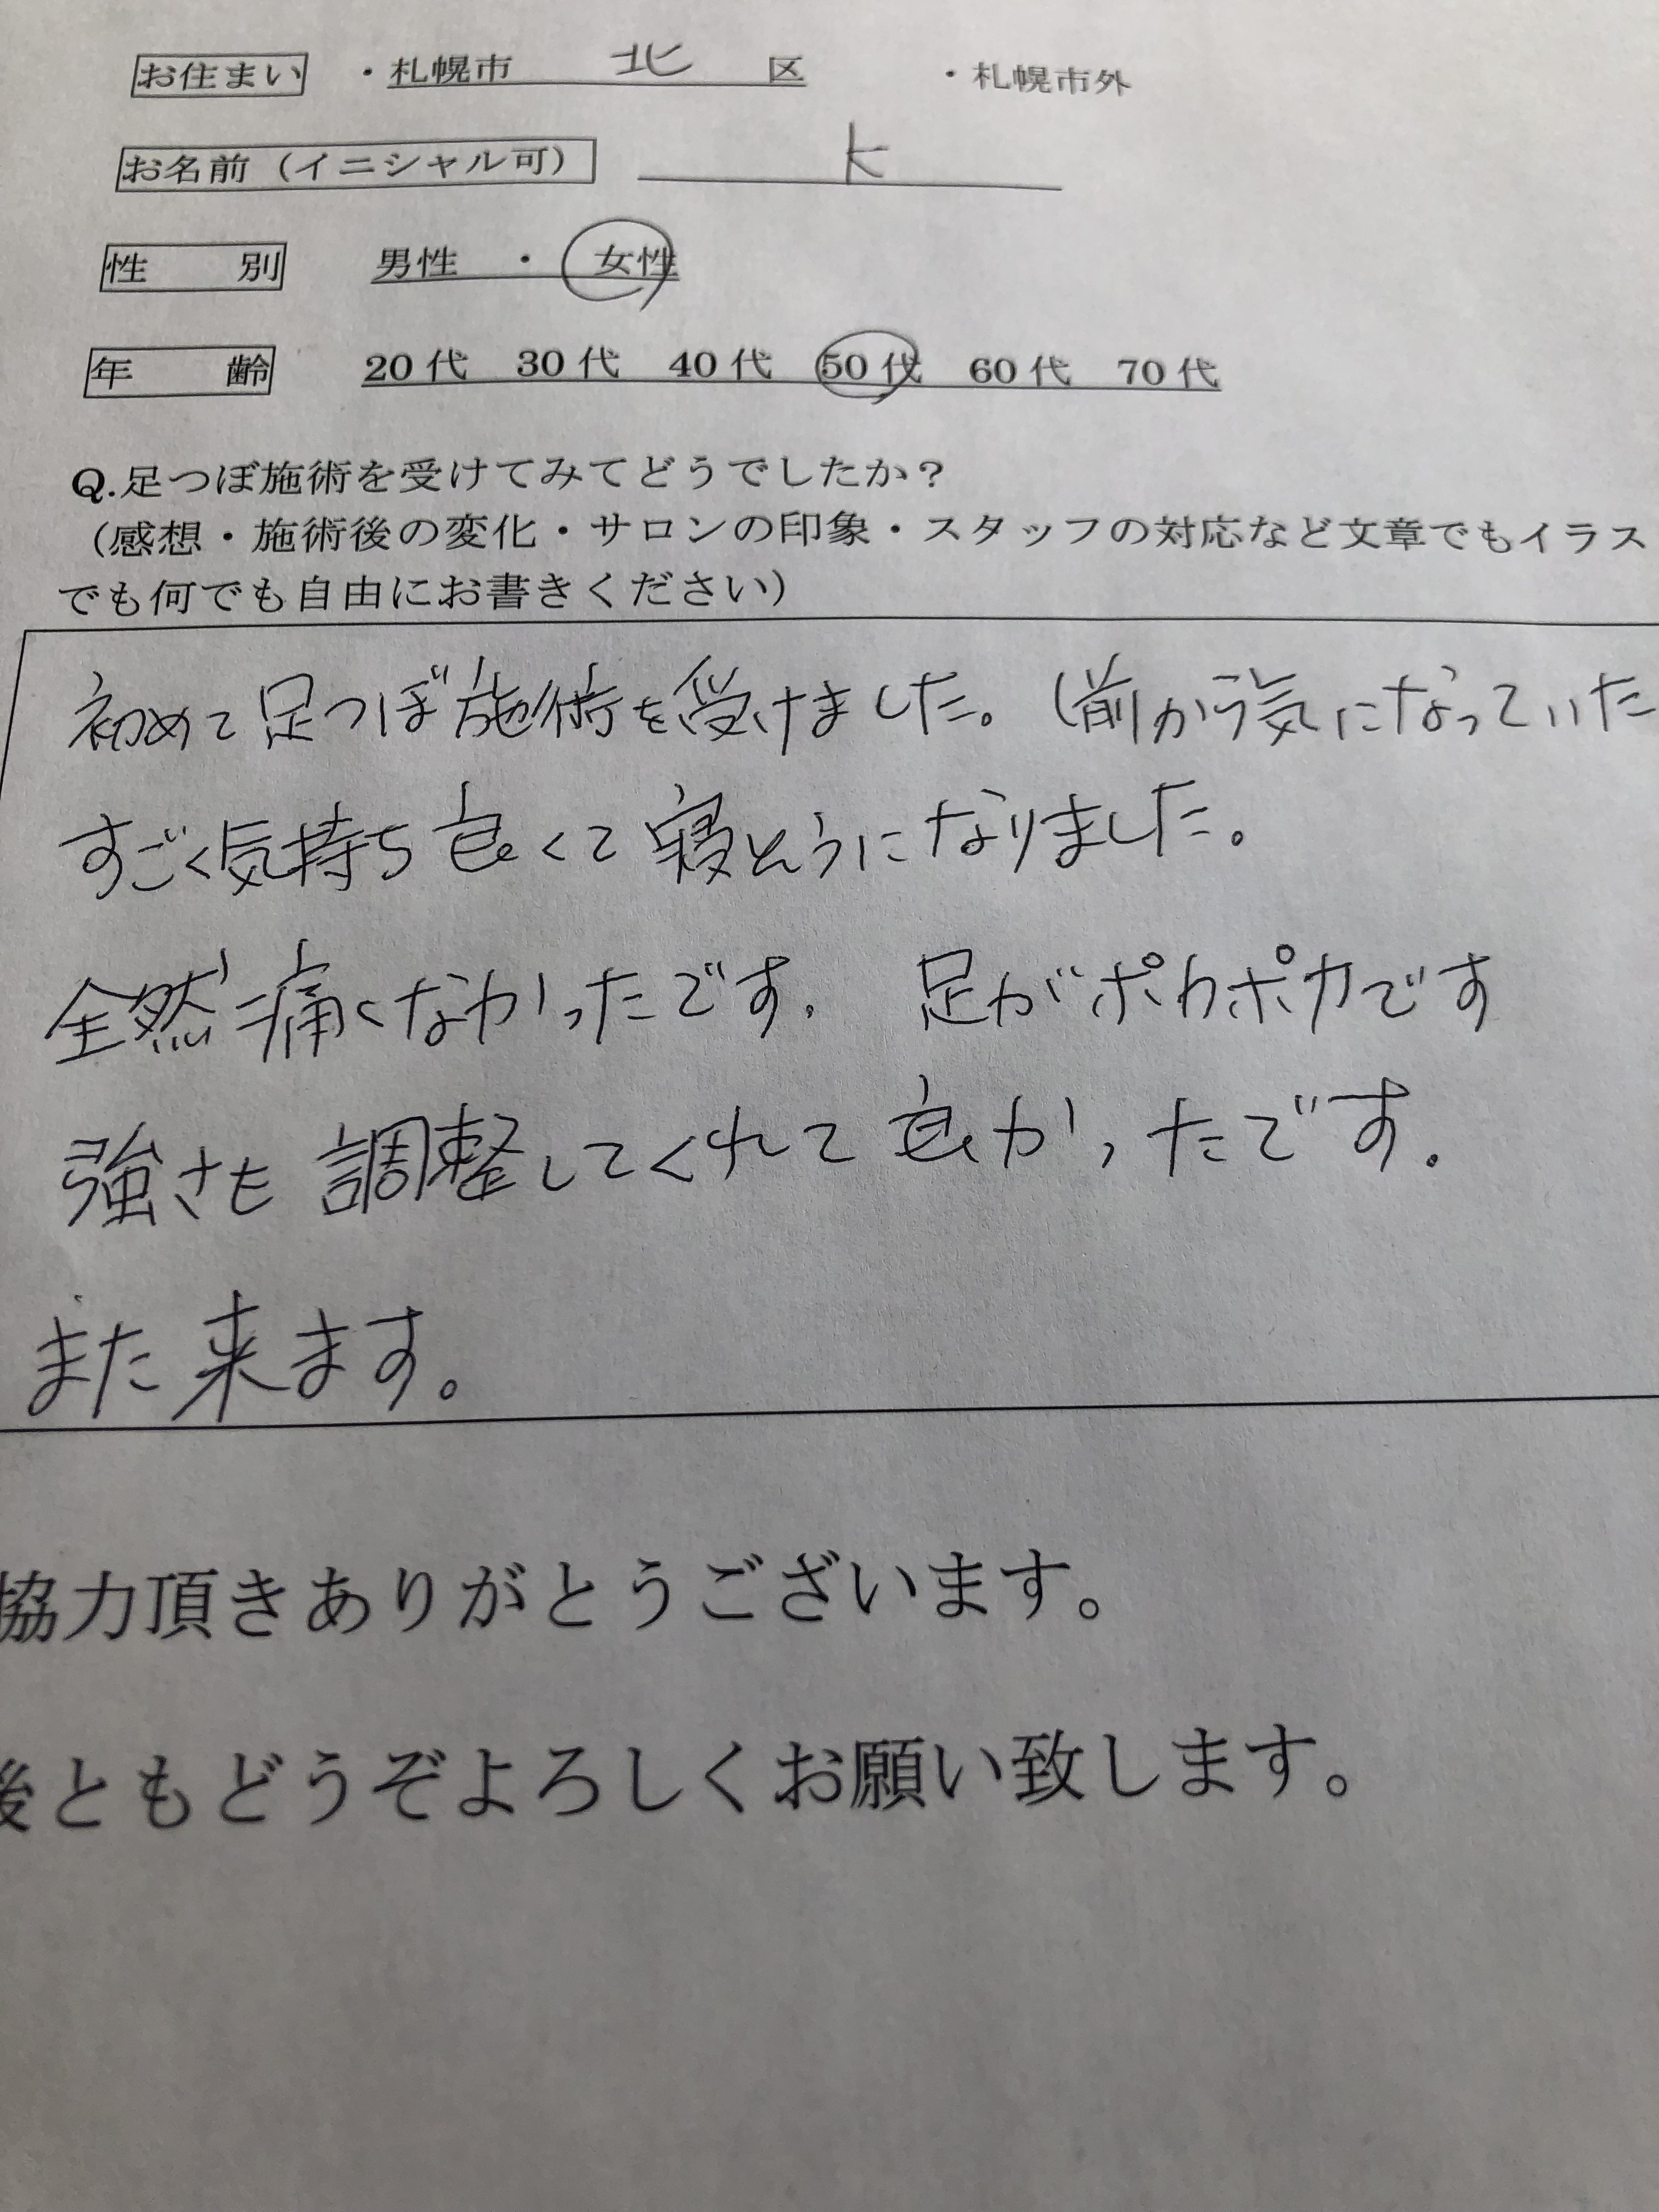 お住まい ・札幌市 北 区 ・札幌市外
お名前（イニシャル可） K
性 別 男性 ・ 女性
年 齢 20代 30代 40代 50代 60代 70代
Q.足つぼ施術を受けてみてどうでしたか？
（感想・施術後の変化・サロンの印象・スタッフの対応など文章でもイラス
でも何でも自由にお書きください）
初めて足つぼ施術を受けました。(前から気になっていた
すごく気持ち良くて寝そうになりました。
全然痛くなかったです. 足がポカポカです
強さも調整してくれて良かったです.
また来ます。
協力頂きありがとうございます。
後ともどうぞよろしくお願い致します。